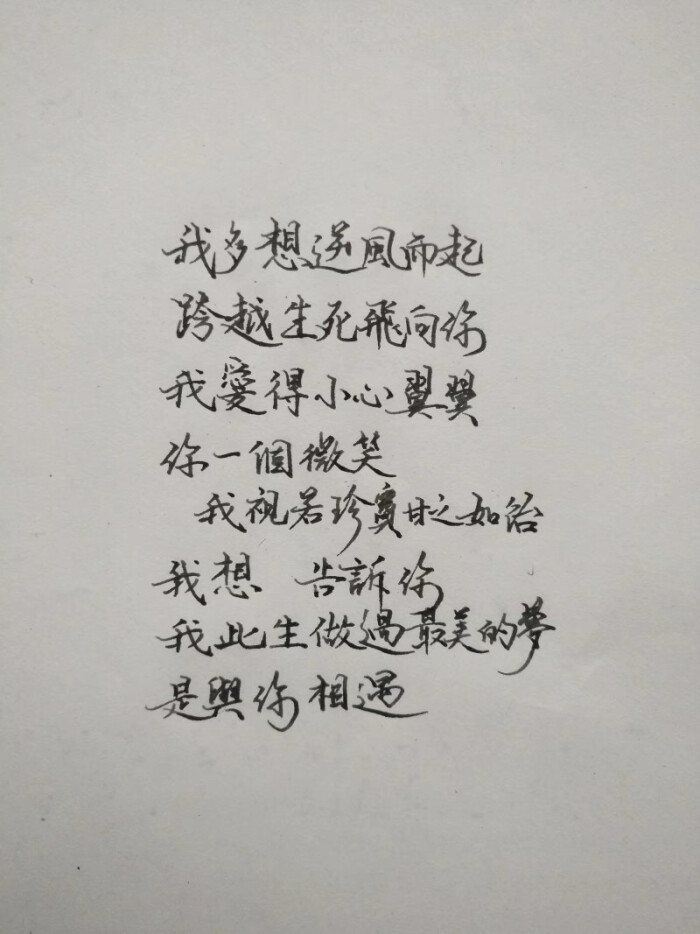 我多想逆風而起
跨越生死飛向你
我愛得小心翼翼
你一個微笑
我視若珍寶甘之如飴
我想 告訴你
我此生做過最美的夢
是與你相遇